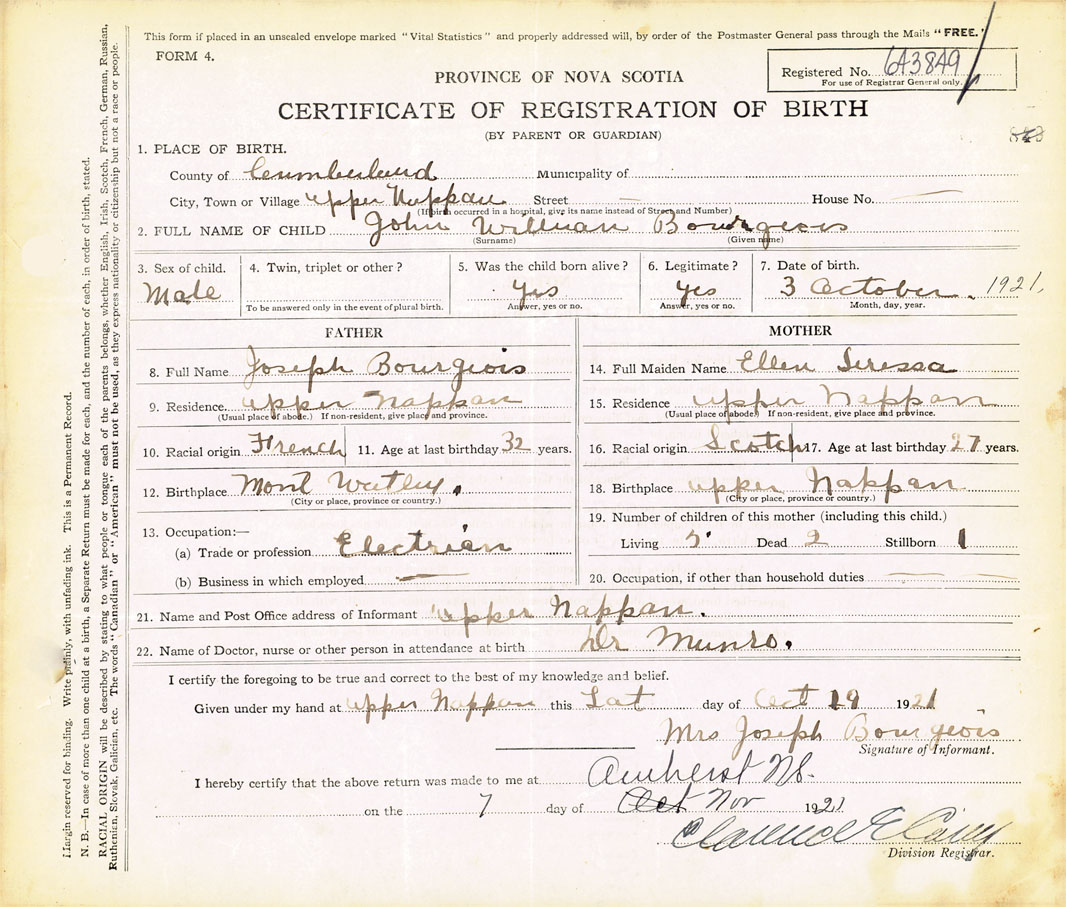 This form if placed in an unsealed envelope marked "Vital Statistics" and properly addressed will, by order of the Postmaster General pass through the Mails "FREE."
FORM 4.
Registered No. 643849
For use of Registrar General only.
PROVINCE OF NOVA SCOTIA
CERTIFICATE OF REGISTRATION OF BIRTH
(BY PARENT OR GUARDIAN)
1. PLACE OF BIRTH.
County of Cumberland Municipality of
City, Town or Village upper Nappan Street — House No. —
(If birth occurred in a hospital, give its name instead of Street and Number)
2. FULL NAME OF CHILD John Willman Bourgeois
(Surname) (Given name)
3. Sex of child. 4. Twin, triplet or other? 5. Was the child born alive? 6. Legitimate? 7. Date of birth.
Male Yes Yes 3 October. 1921.
To be answered only in the event of plural birth. Answer, yes or no. Answer, yes or no. Month, day, year.
FATHER
8. Full Name Joseph Bourgeois
9. Residence upper Nappan
(Usual place of abode.) If non-resident, give place and province.
10. Racial origin French 11. Age at last birthday 32 years.
12. Birthplace Mont Wutley.
(City or place, province or country.)
13. Occupation:—
(a) Trade or profession Electrian
(b) Business in which employed —
MOTHER
14. Full Maiden Name Ellen Seressa
15. Residence upper Nappan
(Usual place of abode.) If non-resident, give place and province.
16. Racial origin Scotch 17. Age at last birthday 27 years.
18. Birthplace upper Nappan
(City or place, province or country.)
19. Number of children of this mother (including this child.)
Living 5 Dead 2 Stillborn 1
20. Occupation, if other than household duties — —
21. Name and Post Office address of Informant upper Nappan.
22. Name of Doctor, nurse or other person in attendance at birth Dr Munro.
I certify the foregoing to be true and correct to the best of my knowledge and belief.
Given under my hand at upper Nappan this Sat day of Oct 19 1921
Mrs Joseph Bourgeois
Signature of Informant.
I hereby certify that the above return was made to me at Amherst NS.
on the 7 day of Oct Nov 1921
Clarence E Casey
Division Registrar.
Margin reserved for binding. Write plainly, with unfading ink. This is a Permanent Record.
N. B.—In case of more than one child at a birth, a Separate Return must be made for each, and the number of each, in order of birth, stated.
RACIAL ORIGIN will be described by stating to what people or tongue each of the parents belongs, whether English, Irish, Scotch, French, German, Russian,
Ruthenian, Slovak, Galician, etc. The words "Canadian" or "American" must not be used, as they express nationality or citizenship but not a race or people.